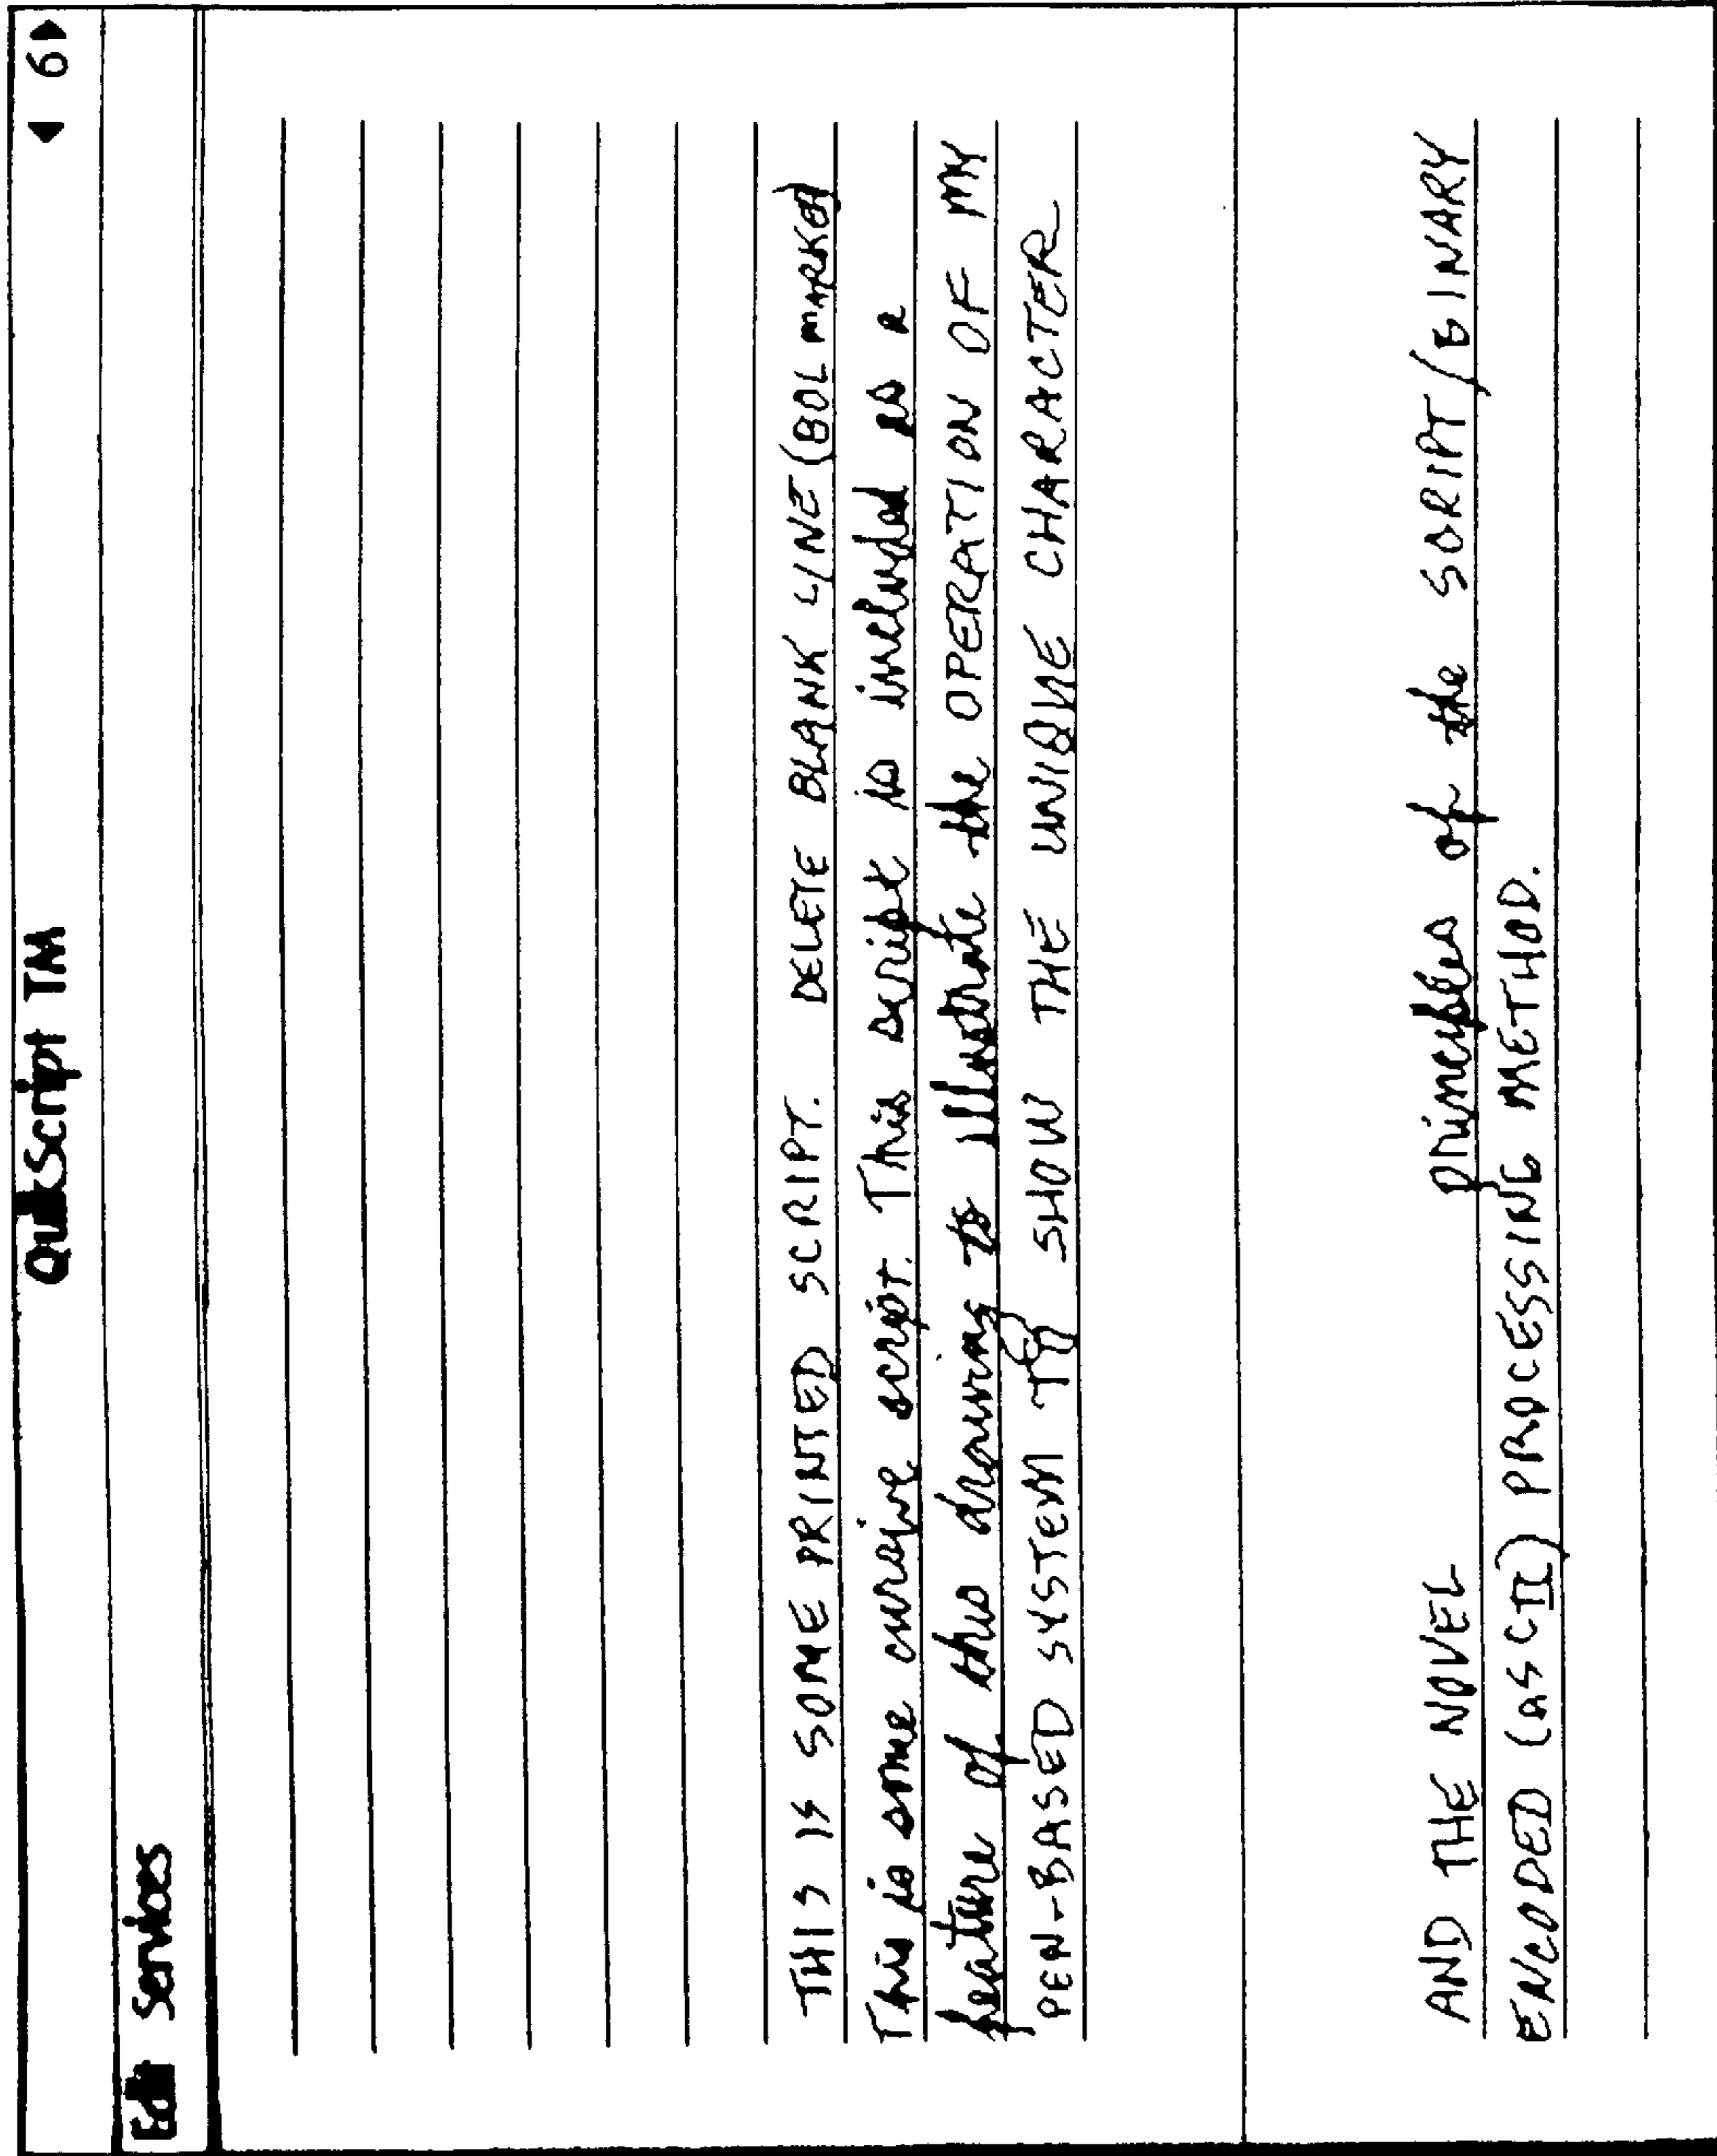 QuikScript TM ◀ 6▶
Edit Services
THIS IS SOME PRINTED SCRIPT. DELETE BLANK LINE (BOL MARKED)
This is some cursive script. This script is included as a
feature of this drawing to illustrate the OPERATION OF MY
PEN-BASED SYSTEM TO SHOW THE UNIQUE CHARACTER
AND THE NOVEL principles of the SCRIPT/BINARY
ENCODED (ASCII) PROCESSING METHOD.